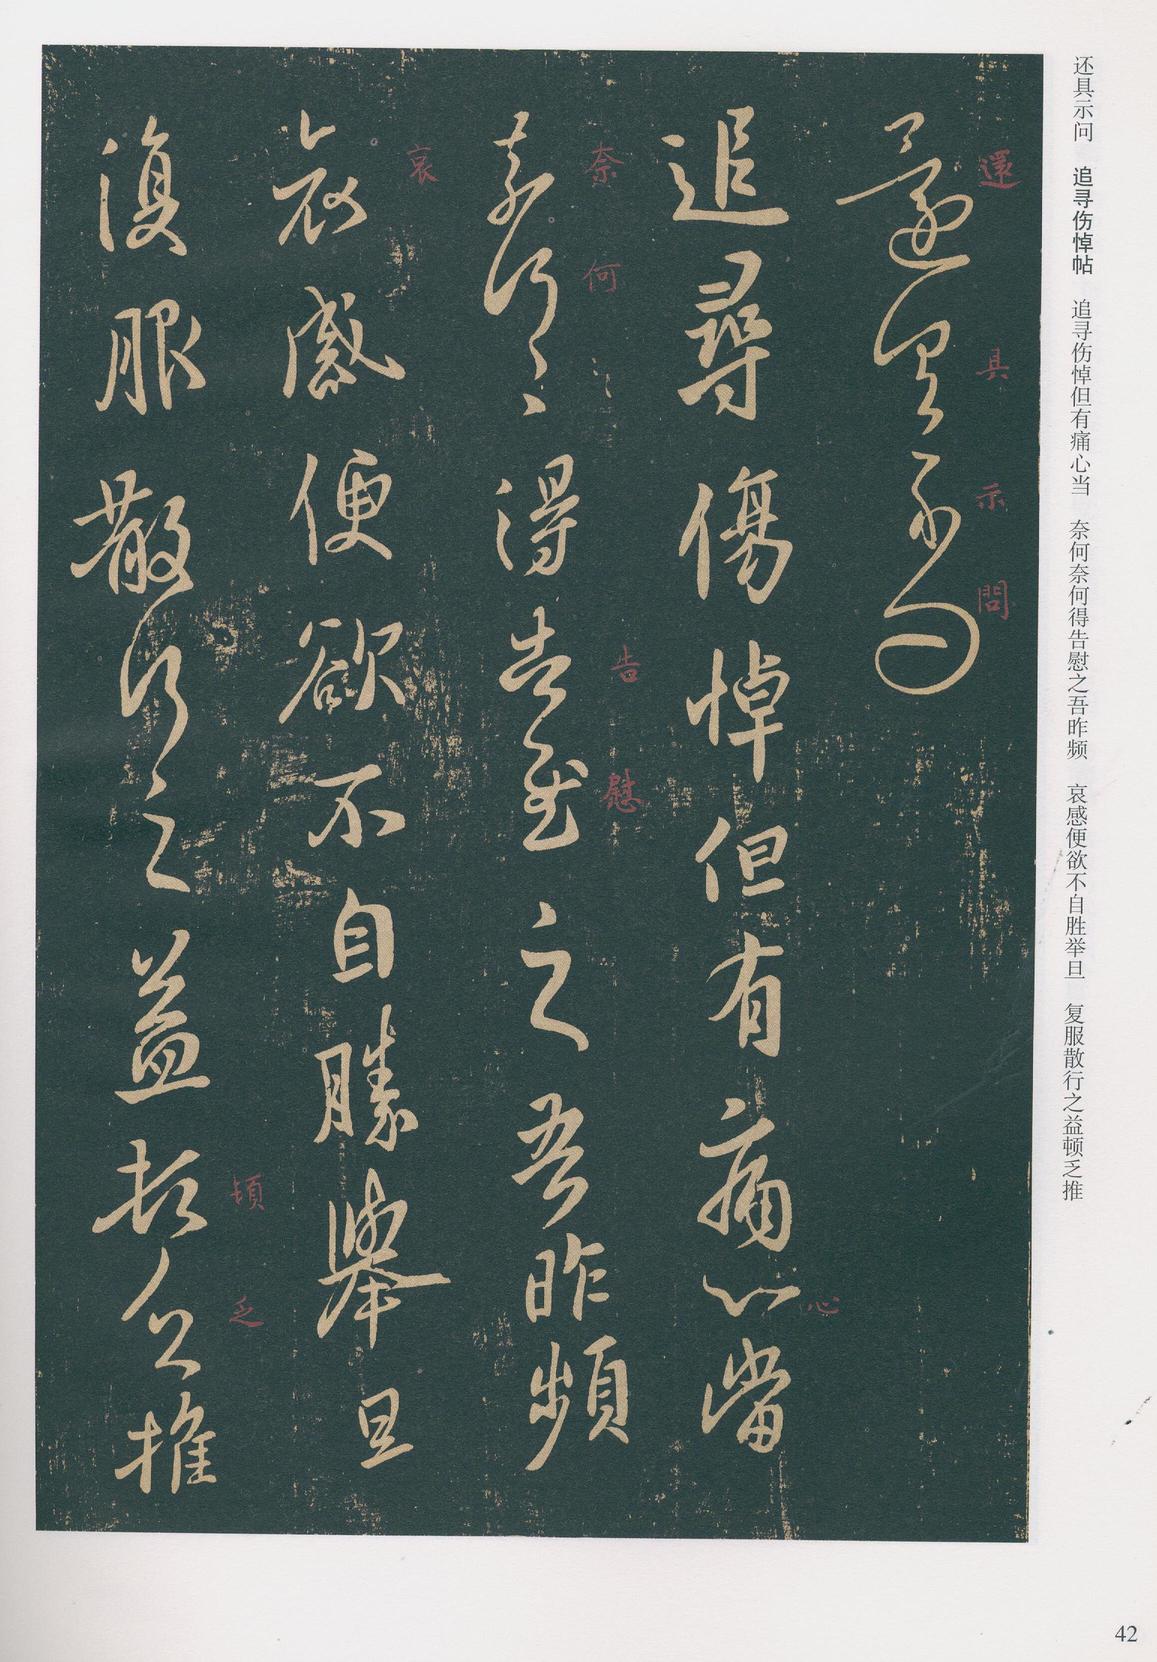 还具示问　追寻伤悼帖　追寻伤悼但有痛心当　奈何奈何得告慰之吾昨频　哀感便欲不自胜举旦　复服散行之益顿乏推
還具示問
還具示問
追尋傷悼但有痛心當
心
奈何〻〻得告慰之吾昨頻
奈何〻〻告慰
哀感便欲不自勝舉旦
哀
復服散行之益頓乏推
頓乏
42